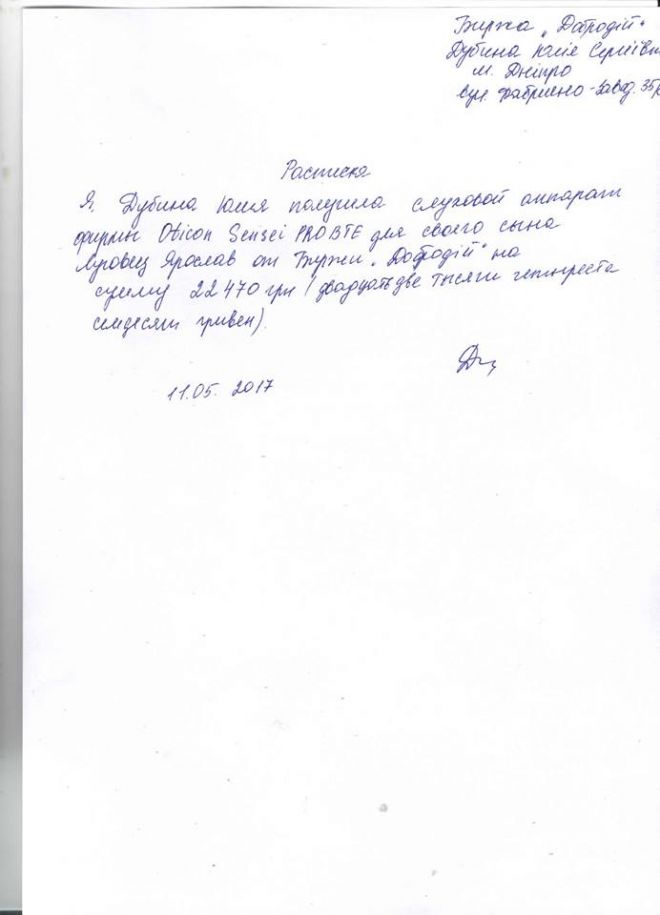 Біржа „Добродій"
Дубина Юлія Сергіївн
м. Дніпро
вул. Фабрично-Завод. 35
Расписка
Я, Дубина Юлия получила слуховой аппарат
фирмы Oticon Sensei PRO BTE для своего сына
Ярослав от Биржи „Добродій" на
сумму 22 470 грн (двадцать две тысячи четыреста
семдесят гривен).
11.05. 2017